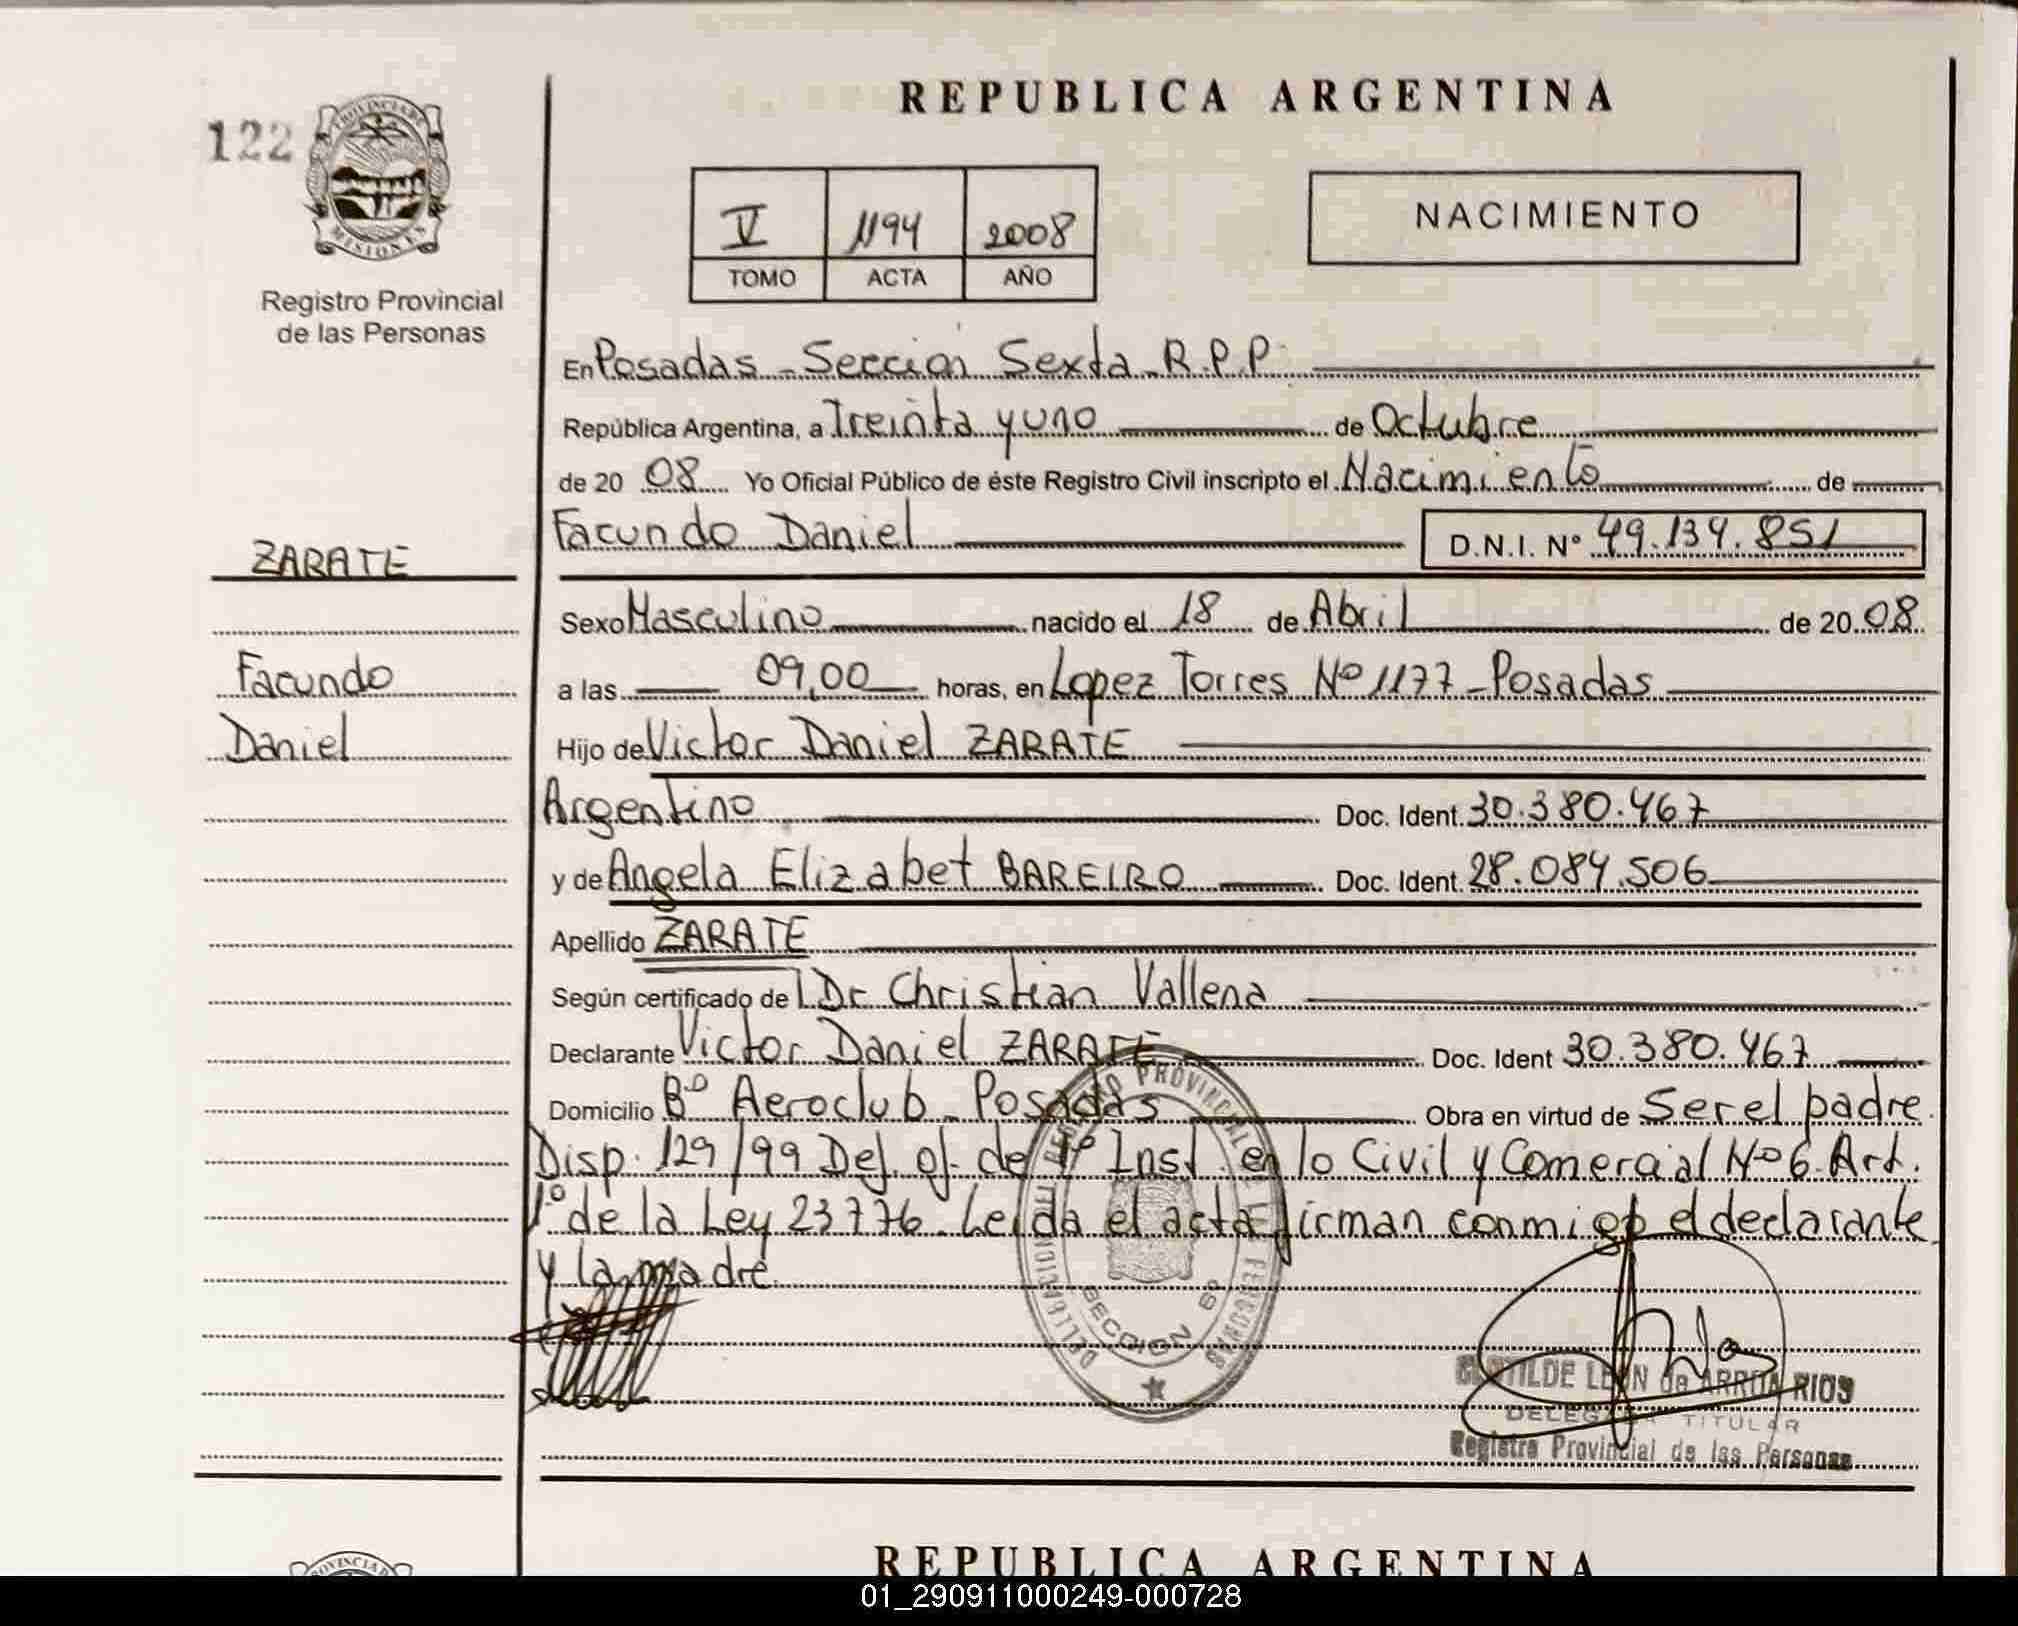 REPUBLICA ARGENTINA
122
PROVINCIA DE
MISIONES
Registro Provincial
de las Personas
V 1194 2008
TOMO ACTA AÑO
NACIMIENTO
En Posadas - Sección Sexta R.P.P.
República Argentina, a Treinta y uno de Octubre
de 20 08 Yo Oficial Público de éste Registro Civil inscripto el Nacimiento de
Facundo Daniel D.N.I. Nº 49.134.851
ZARATE
Facundo
Daniel
Sexo Masculino nacido el 18 de Abril de 20 08
a las 09,00 horas, en Lopez Torres Nº 1177 - Posadas
Hijo de Victor Daniel ZARATE
Argentino Doc. Ident. 30.380.467
y de Angela Elizabet BAREIRO Doc. Ident. 28.084.506
Apellido ZARATE
Según certificado de Dr Christian Vallena
Declarante Victor Daniel ZARATE Doc. Ident 30.380.467
Domicilio Bº Aeroclub - Posadas Obra en virtud de Ser el padre.
Disp. 129/99 Def. of. de 1º Inst. en lo Civil y Comercial Nº 6. Art.
1º de la Ley 23776. Leida el acta firman conmigo el declarante
y la madre
REGISTRO PROVINCIAL DE LAS PERSONAS
SECCION 6º
CLOTILDE LEON de ARRUA RIOS
DELEGADA TITULAR
Registro Provincial de las Personas
REPUBLICA ARGENTINA
01_290911000249-000728